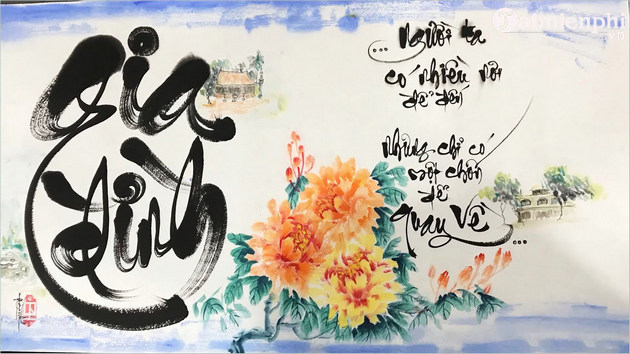 Gia
đình
... người ta
có nhiều nơi
để đến
nhưng chỉ có
một chốn
để
quay về ...
Taimienphi
.vn